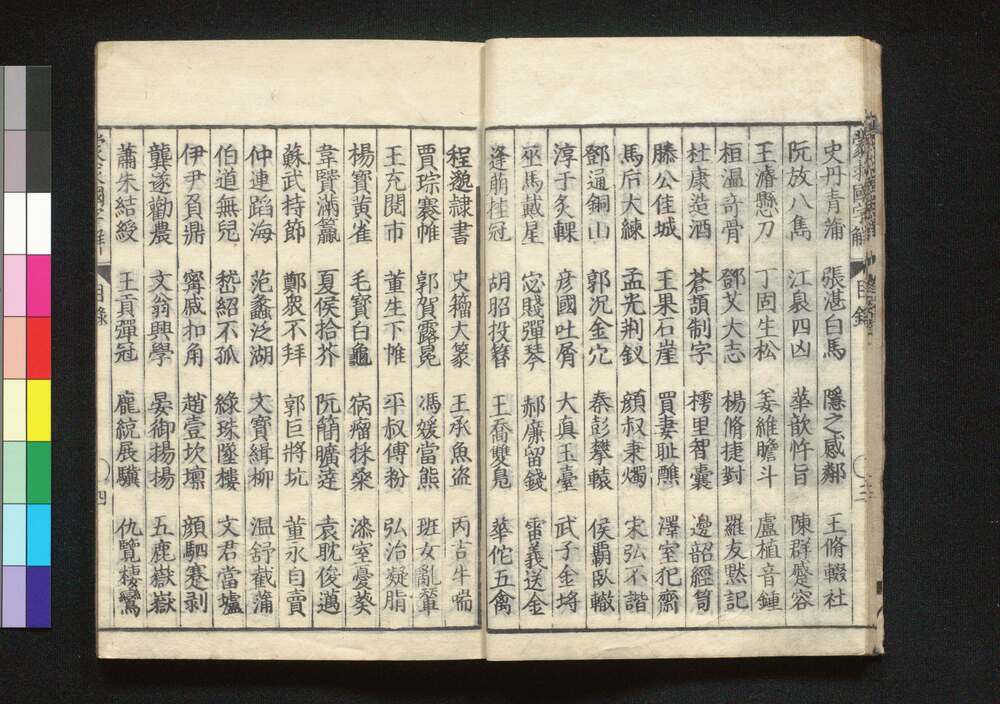 蒙求國字解 目錄 三
史丹青蒲 張湛白馬 隱之感鄰 王脩輟社
阮放八雋 江泉四凶 華歆忤旨 陳群蹙容
王濬懸刀 丁固生松 姜維膽斗 盧植音鍾
桓溫奇骨 鄧艾大志 楊脩捷對 羅友默記
杜康造酒 蒼頡制字 樗里智囊 邊韶經笥
滕公佳城 王果石崖 買妻耻醮 澤室犯齋
馬后大練 孟光荊釵 顏叔秉燭 宋弘不諧
鄧通銅山 郭況金穴 秦彭攀轅 侯霸臥轍
淳于炙輠 彥國吐屑 大真玉臺 武子金埒
巫馬戴星 宓賤彈琴 郝廉留錢 雷義送金
逢萌挂冠 胡昭投簪 王喬雙鳧 華佗五禽
程邈隷書 史籀大篆 王承魚盜 丙吉牛喘
賈琮褰帷 郭賀露冕 馮媛當熊 班女辭輦
王充閱市 董生下帷 平叔傅粉 弘治凝脂
楊寶黃雀 毛寶白龜 宿瘤採桒 漆室憂葵
韋賢滿籯 夏侯拾芥 阮簡曠達 袁耽俊邁
蘇武持節 鄭眾不拜 郭巨將坑 董永自賣
仲連蹈海 范蠡泛湖 文寶緝柳 溫舒截蒲
伯道無兒 嵇紹不孤 綠珠墜樓 文君當壚
伊尹負鼎 甯戚扣角 趙壹坎壈 顏駟蹇剥
龔遂勸農 文翁興學 晏御揚揚 五鹿嶽嶽
蕭朱結綬 王貢彈冠 龐統展驥 仇覽棲鸞
蒙求國字解 目錄 四